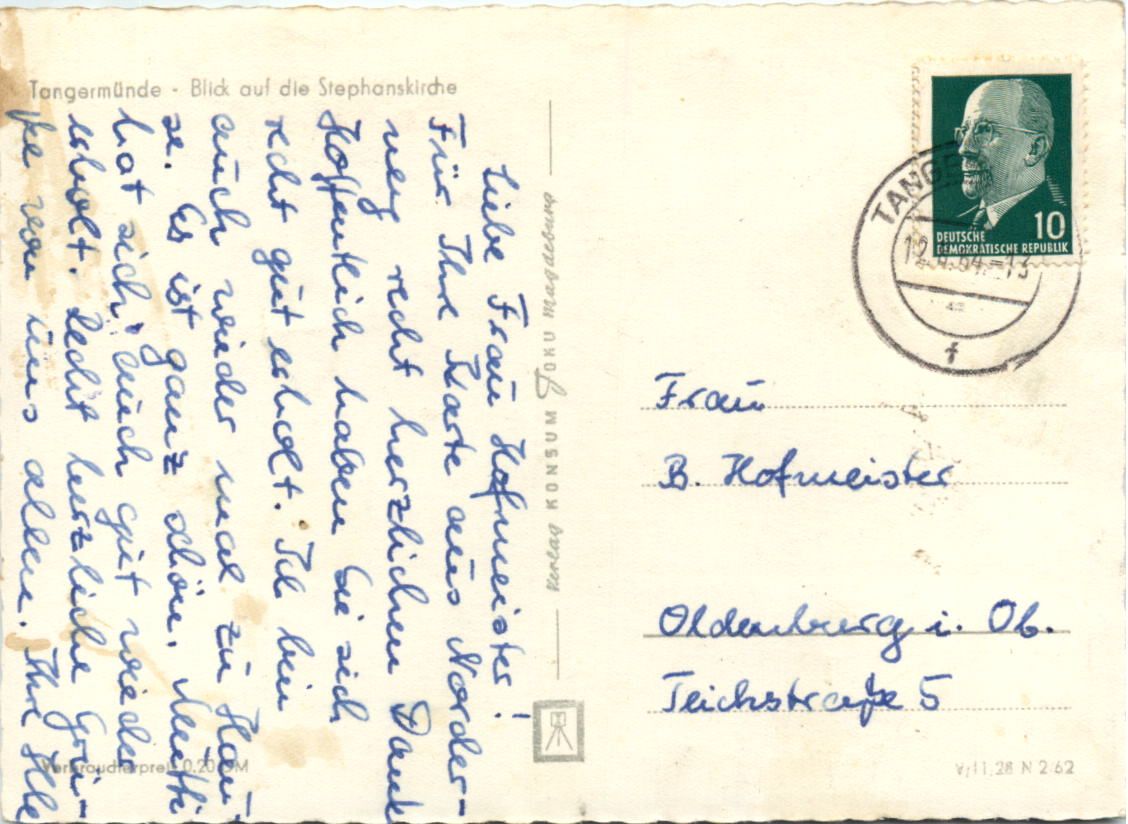 Tangermünde - Blick auf die Stephanskirche
Liebe Frau Hofmeister!
Für Ihre Karte aus Norder-
ney recht herzlichen Dank
Hoffentlich haben Sie sich
recht gut erholt. Ich bin
auch wieder mal zu Hau-
se. Es ist ganz schön. Mutti
hat sich auch gut wieder
erholt. Recht herzliche Grü-
ße von uns allen. Ihre
Verbraucherpreis 0,20 DM
VERLAG KONSUM FOKU MAGDEBURG
10
DEUTSCHE
DEMOKRATISCHE REPUBLIK
Frau
B. Hofmeister
Oldenburg i. Ob.
Teichstraße 5
V/11,28 N 2/62